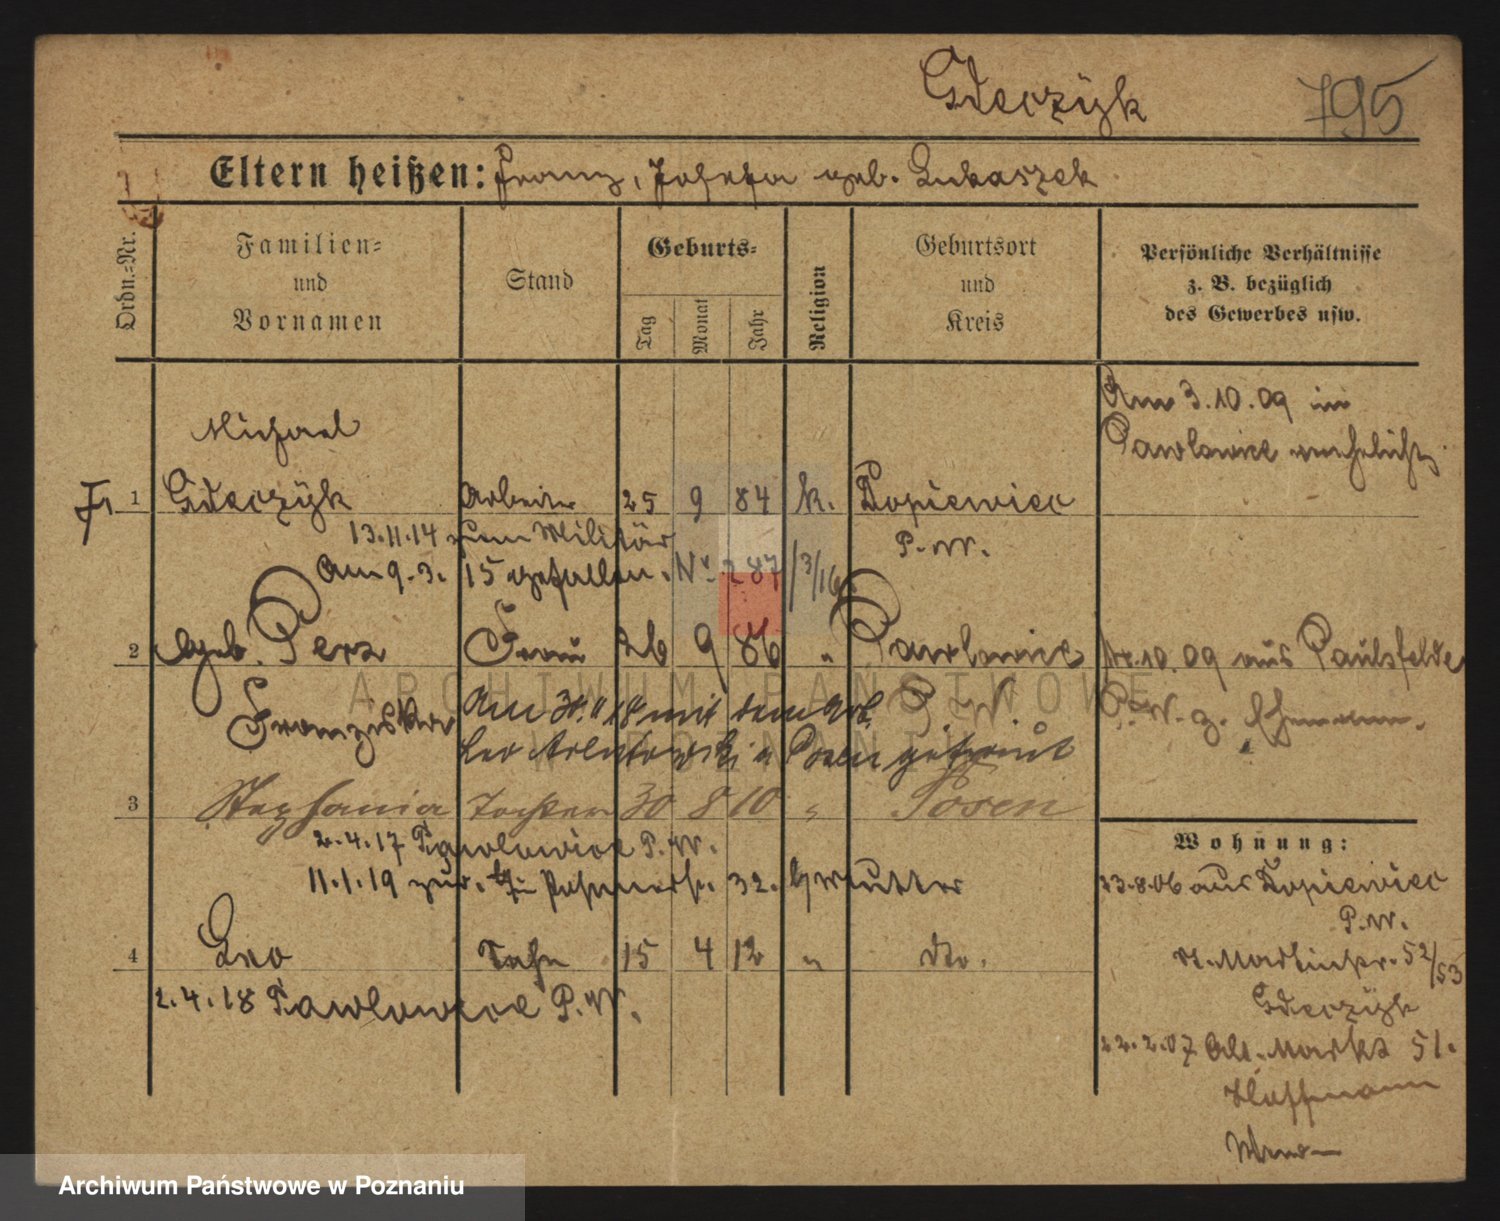 Gdeczÿk 795
Eltern heißen: Franz, Josefa geb. Lukaszek
Ordn.-Nr.
Familien- und Vornamen
Stand
Geburts-
Tag Monat Jahr
Religion
Geburtsort und Kreis
Persönliche Verhältnisse z. B. bezüglich des Gewerbes usw.
Am 3.10.09 in
Pawlowice verehelicht
Michael
1 Gdeczÿk Arbeiter 25 9 84 k. Dopiewiec
13.11.14 zum Militär P.W.
Am 9.3.15 gefallen. Nr. 287/3/16
2 geb. Perz Frau 26 9 86 " Pawlowice
10.09 aus Paulsfelde
Franziska Am 30.11.18 mit dem Arb. P.W.
P.W. z. Ehemann.
Leo in Posen getraut
3 Stephania Tochter 30 8 10 " Posen
2.4.17 Pawlowice P.W.
11.1.19 zur. 32. b/Mutter
4 Leo Sohn 15 4 12 " do.
2.4.18 Pawlowice P.W.
Wohnung:
23.8.06 aus Dopiewiec
P.W.
St. Martinstr. 52/53
Gdeczÿk
22.2.07 Alt. Markt 51.
Hoffmann
ARCHIWUM PAŃSTWOWE
W POZNANIU
Archiwum Państwowe w Poznaniu